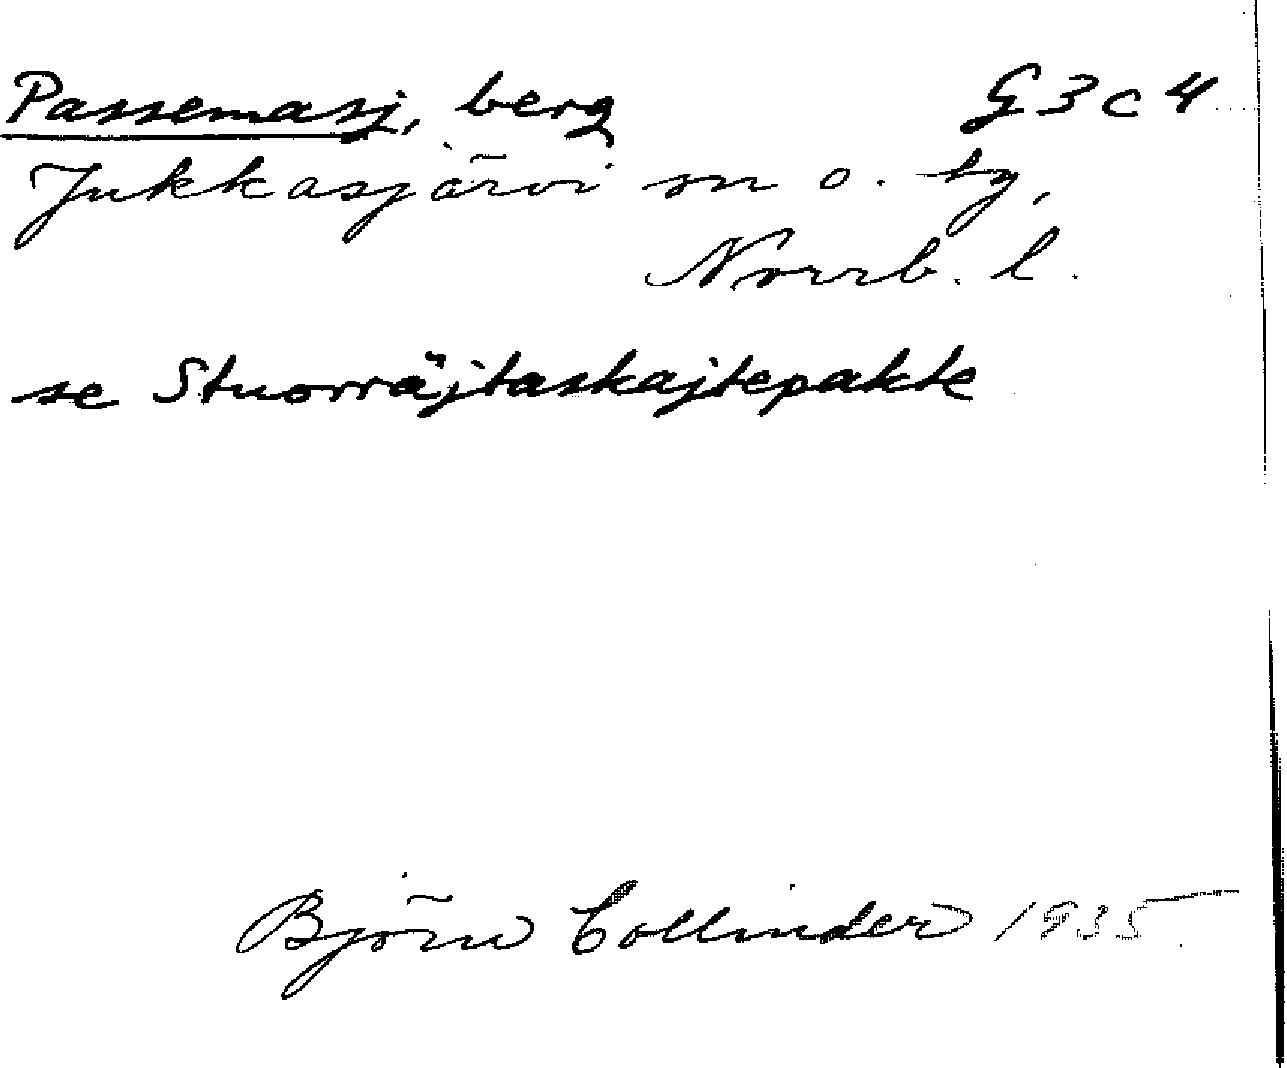 Passemasj, berg G3c4
Jukkasjärvi sn o. tg,
Norrb. l.
se Stuorräjtaskajtepakte
Björn Collinder 1935